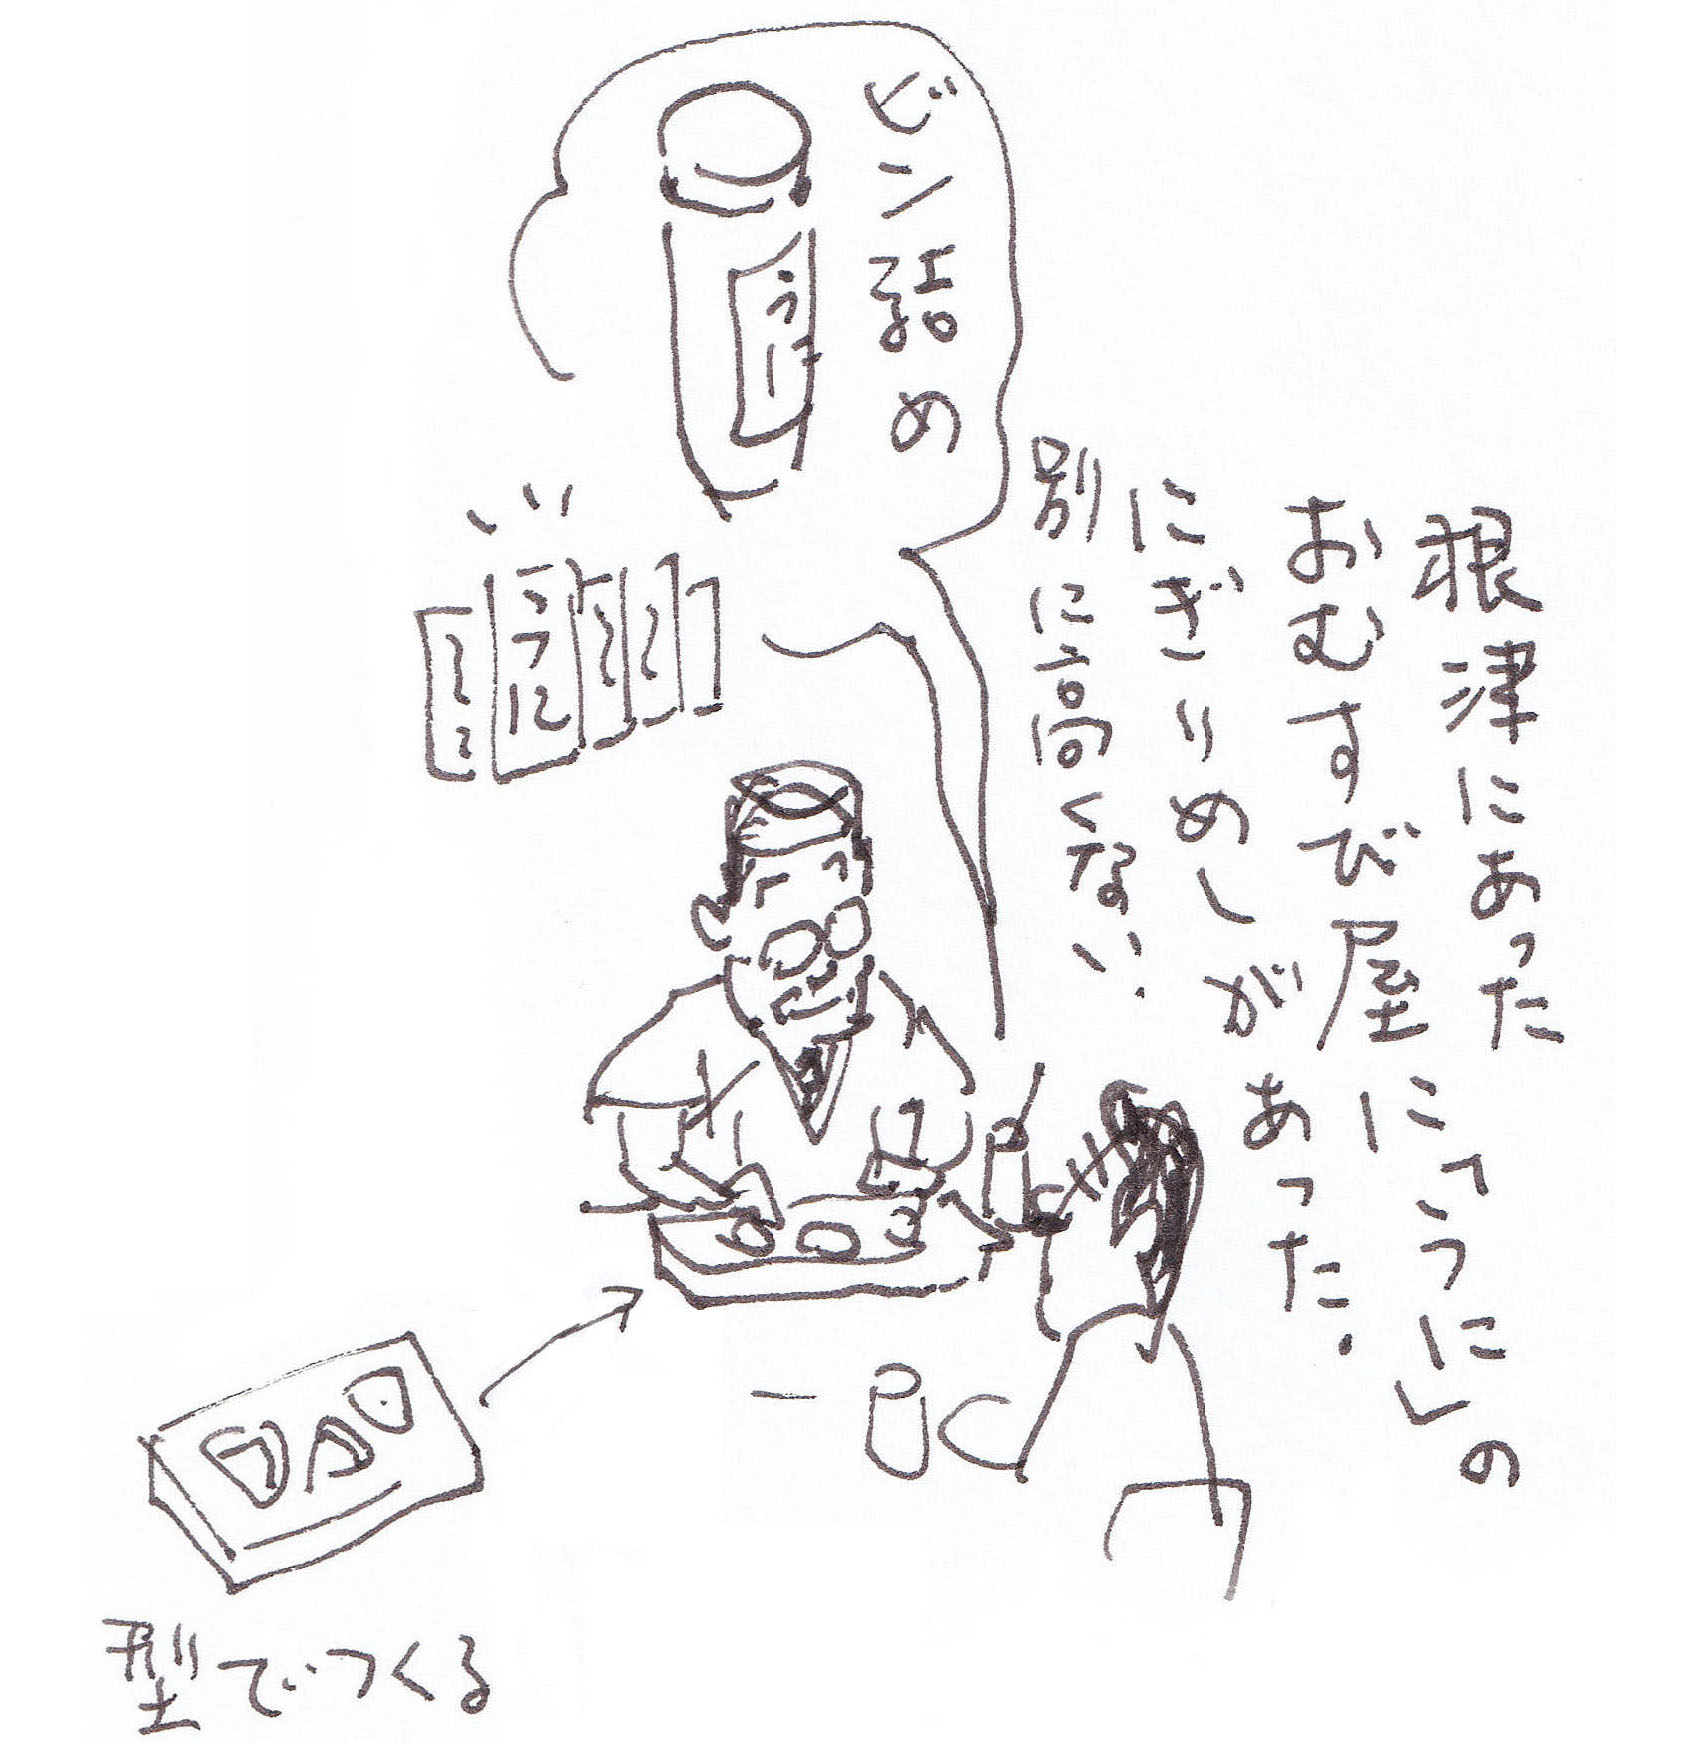 根津にあった
おむすび屋に「うに」の
にぎりめしがあった.
別に高くない.
ビン詰め
うに
うに
型でつくる